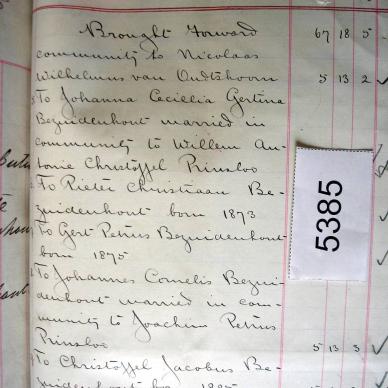 Brought Forward 67 18 5
community to Nicolaas
Wilhelmus van Oudtshoorn 5 13 2
To Johanna Cecillia Gertina
Bezuidenhout married in
community to Willem An-
tonie Christoffel Prinsloo
To Pieter Christiaan Be-
zuidenhout born 1873
To Gert Petrus Bezuidenhout
born 1875
To Johannes Cornelis Bezui-
denhout married in com-
munity to Joachim Petrus
Prinsloo 5 13 3
To Christoffel Jacobus Be-
zuidenhout
5385